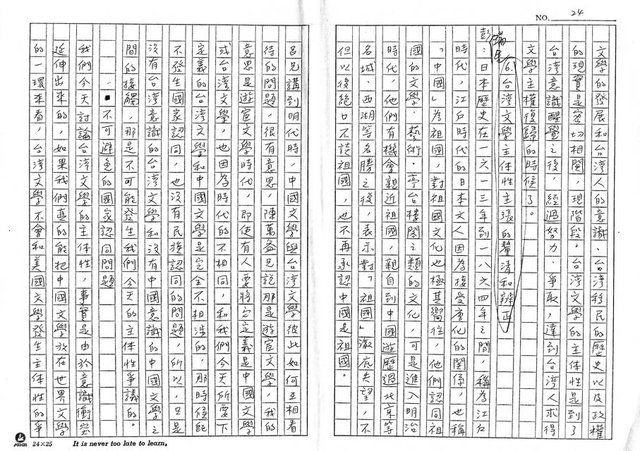 NO. 24
文學的發展和台灣人的意識、台灣移民的歷史以及政權
的現實是密切相關,經現階段。台灣文學的主體性是到了
台灣意識醒覺,經過努力、爭取,達到台灣人求得
文學主權復歸的時候了。
(6)台灣文學主體性主張的釐清和辨正
彭瑞金:日本歷史在一六〇三年到一八六四年之間,稱為江戶
時代,江戶時代的日本文人因為接受漢化的關係,也稱
「中國」為祖國,對祖國文化也極其嚮往,他們認同祖
國的文學、藝術、亭台樓閣之類的文化,可是進入明治
時代,他們有機會親近祖國,親自到中國遊歷過北京等
名城、西湖等名勝之後,表示對「祖國」澈底失望,不
但以後絕口不談祖國,也不再承認中國是祖國。
呂兄講到明代時,中國文學與台灣文學彼此如何互相看
待的問題,很有意思,陳萬益兄說那是遊宦文學,我的
意思是遊宦文學也罷,即使有人要將它定義是中國文學
或台灣文學,也因為時代的不同,和我們今天所要下
定義的台灣文學和中國文學是完全不相涉的。那時候既
不發生國家認同,也沒有民族認同的問題,所以,只是
沒有台灣意識的台灣文學和沒有中國意識的中國文學之
間的接觸,那是不可能發生我們今天的主體性爭議的。
不可避免的國家認同問題
我們今天討論台灣文學的主體性,事實是由於意識衝突
延伸出來的,如果我們真的能把中國文學放在世界文學
的一環來看,台灣文學不會和美國文學發生主體性的爭
24×25
It is never too late to learn,